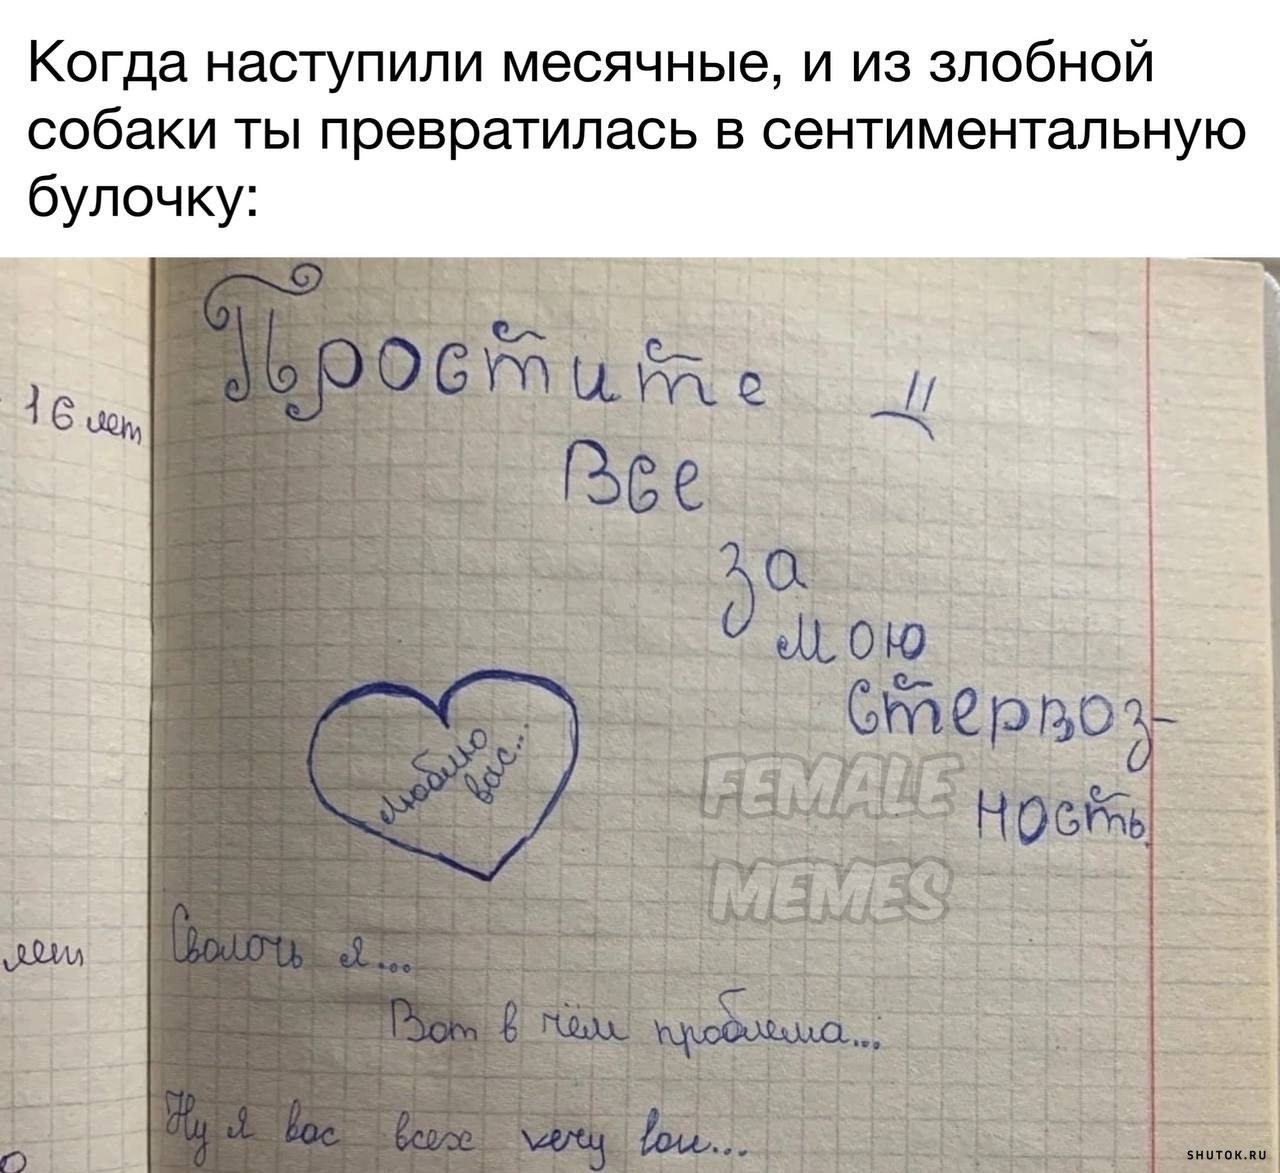 Когда наступили месячные, и из злобной
собаки ты превратилась в сентиментальную
булочку:
16 лет
Простите
Все
за
мою
стервоз-
ность
Люблю
вас...
FEMALE
MEMES
лет
Сволочь я...
Вот в чём проблема...
Ну я вас всех very лов...
SHUTOK.RU